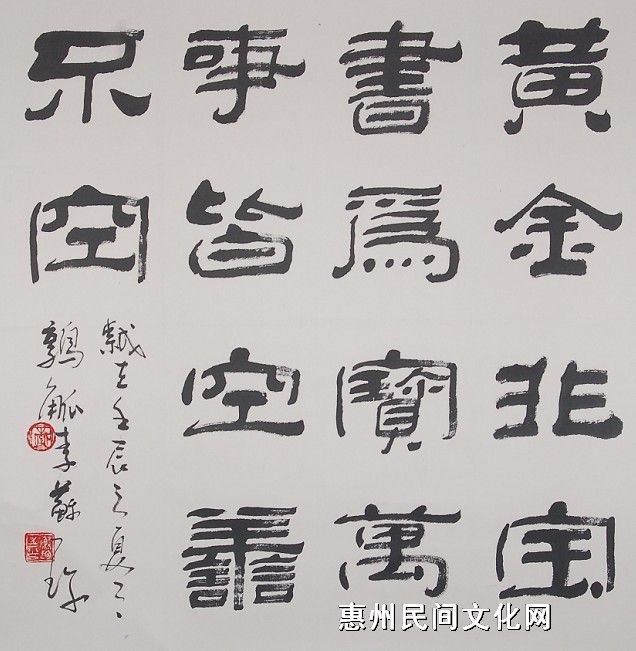 黄金非宝
書爲寶萬
事皆空善
不空
歲在壬辰之夏
鶉觚李蘇
惠州民间文化网